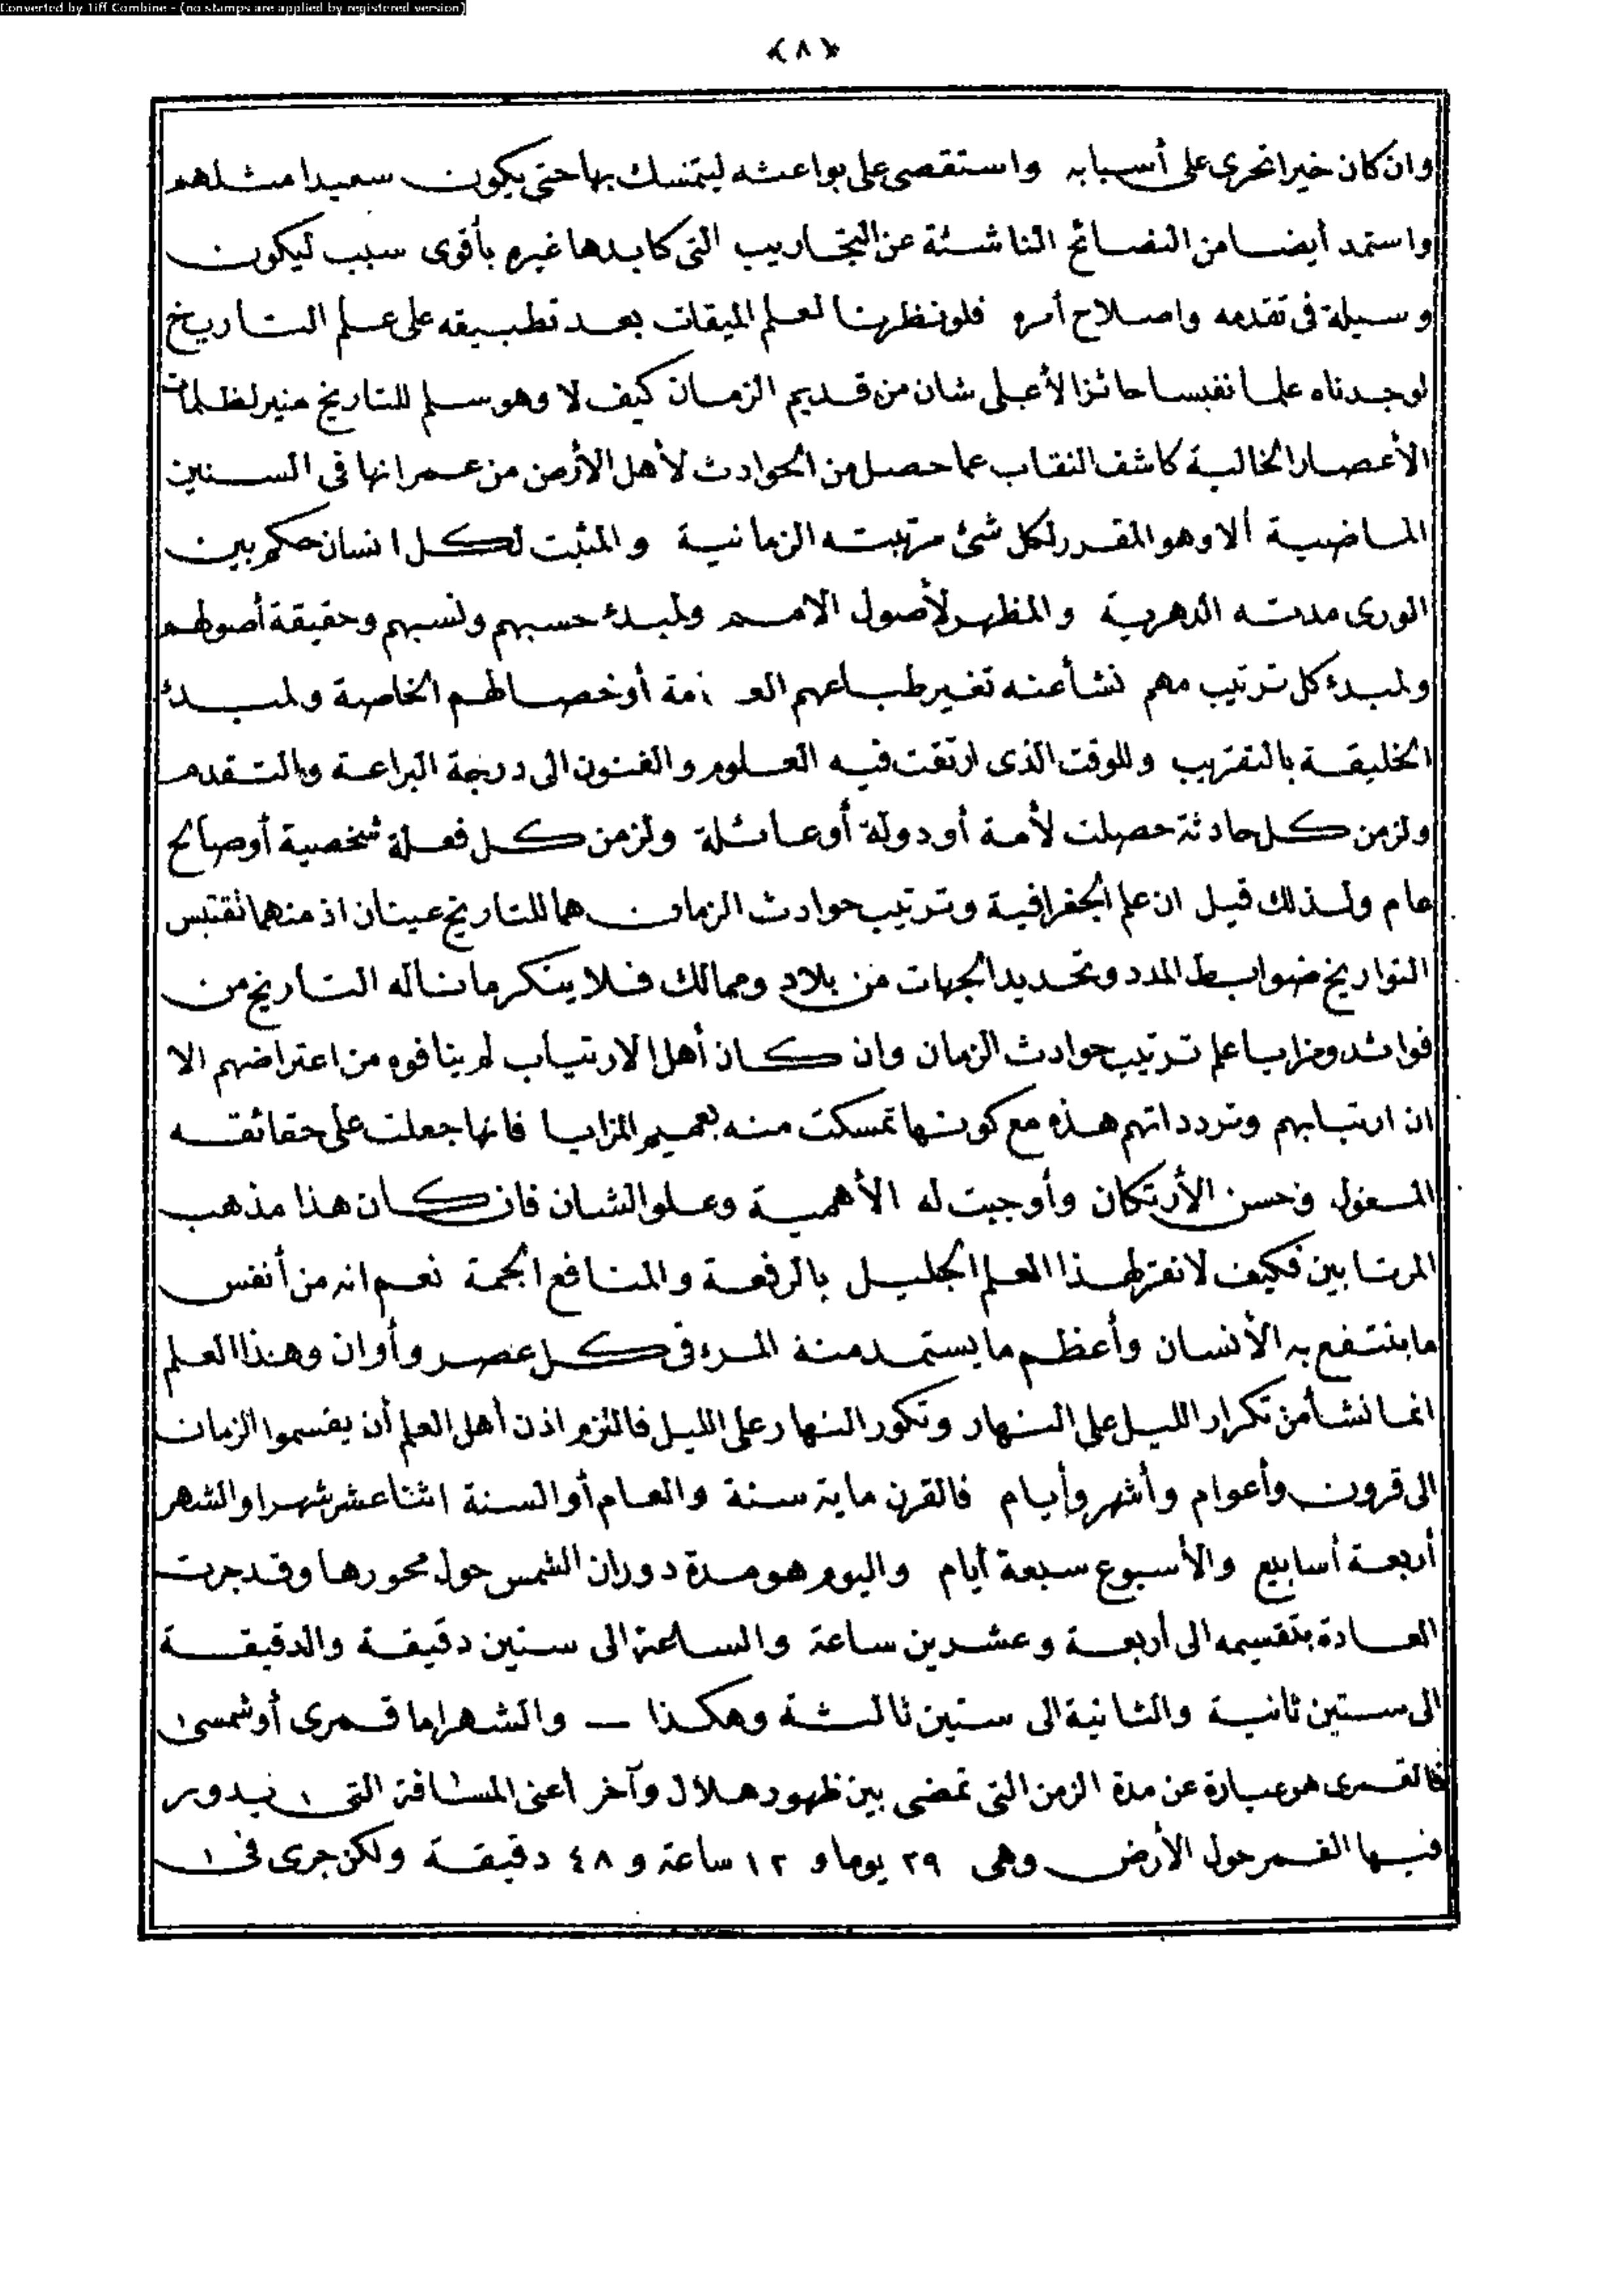 Converted by Tiff Combine - (no stamps are applied by registered version)
﴿٨﴾
وان كان خيرا تحرى على أسبابه واستقصى على بواعثه ليتمسك بها حتى يكون سعيدا مثلهم
واستمد أيضا من النصائح الناشئة عن التجاريب التى كابدها غيره بأقوى سبب ليكون
وسيلة فى تقدمه واصلاح أمره فلو نظرنا لعلم الميقات بعد تطبيقه على علم التاريخ
لوجدناه علما نفيسا حائزا لأعلى شان من قديم الزمان كيف لا وهو سلم للتاريخ منير لظلمات
الأعصار الخالية كاشف النقاب عما حصل من الحوادث لأهل الأرض من عمرانها فى السنين
الماضية ألا وهو المقرر لكل شئ مرتبته الزمانية والمثبت لكل انسان حكم بين
الورى مدته الدهرية والمظهر لأصول الامم ولمبدء حسبهم ونسبهم وحقيقة أصولهم
ولمبدء كل ترتيب مهم نشأ عنه تغير طباعهم أو خصالهم الخاصة ولمبدء
الخليقة بالتقريب وللوقت الذى ارتقت فيه العلوم والفنون الى درجة البراعة والتقدم
ولزمن كل حادثة حصلت لأمة أو دولة أو عائلة ولزمن كل فعلة شخصية أو صالح
عام ولذلك قيل ان علم الجغرافية وترتيب حوادث الزمان هما للتاريخ عينان اذ منهما تقتبس
التواريخ ضوابط المدد وتحديد الجهات من بلاد وممالك فلا ينكر ما ناله التاريخ من
فوائد ومزايا علم ترتيب حوادث الزمان وان كان أهل الارتياب لم ينافوه من اعتراضهم الا
ان ارتيابهم وتردداتهم هذه مع كونها تمسكت منه بعميم المزايا فانها جعلت على حقائقه
المعول وحسن الأرتكان وأوجبت له الأهمية وعلو الشان فان كان هذا مذهب
المرتابين فكيف لا نقر لهذا العلم الجليل بالرفعة والمنافع الجمة نعم انه من أنفس
ما ينتفع به الأنسان وأعظم ما يستمد منه المرء فى كل عصر وأوان وهذا العلم
انما نشأ من تكرار الليل على النهار وتكور النهار على الليل فالتزم اذن أهل العلم أن يقسموا الزمان
الى قرون وأعوام وأشهر وأيام فالقرن ماية سنة والعام أو السنة اثنا عشر شهرا والشهر
أربعة أسابيع والأسبوع سبعة أيام واليوم هو مدة دوران الشمس حول محورها وقد جرت
العادة بتقسيمه الى أربعة وعشرين ساعة والساعة الى ستين دقيقة والدقيقة
الى ستين ثانية والثانية الى ستين ثالثة وهكذا — والشهر اما قمرى أو شمسى
فالقمرى هو عبارة عن مدة الزمن التى تمضى بين ظهور هلال وآخر أعنى المسافة التى يدور
فيها القمر حول الأرض وهى ٢٩ يوما و ١٢ ساعة و ٤٨ دقيقة ولكن جرى فى